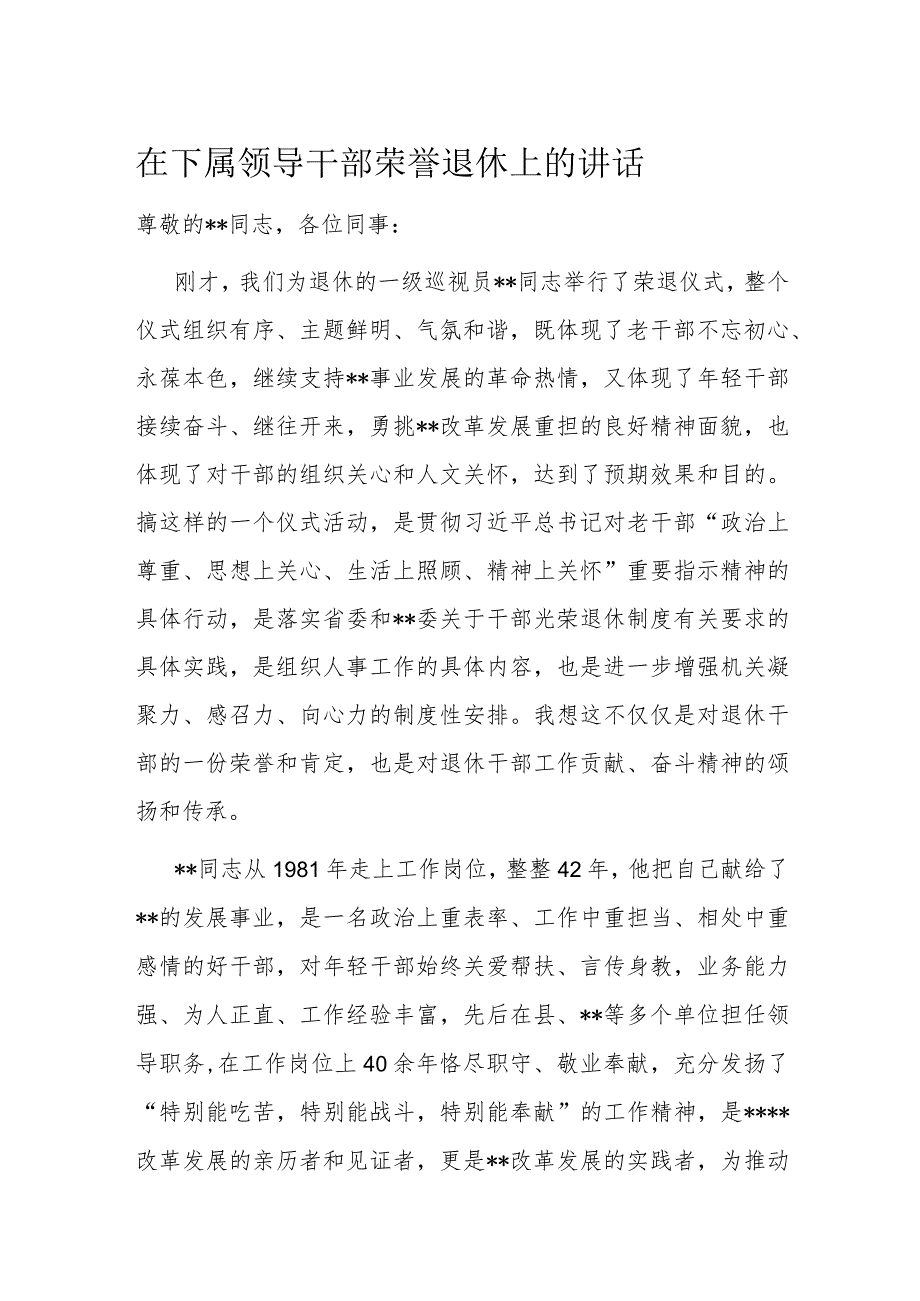 在下属领导干部荣誉退休上的讲话
尊敬的**同志，各位同事：
刚才，我们为退休的一级巡视员**同志举行了荣退仪式，整个
仪式组织有序、主题鲜明、气氛和谐，既体现了老干部不忘初心、
永葆本色，继续支持**事业发展的革命热情，又体现了年轻干部
接续奋斗、继往开来，勇挑**改革发展重担的良好精神面貌，也
体现了对干部的组织关心和人文关怀，达到了预期效果和目的。
搞这样的一个仪式活动，是贯彻习近平总书记对老干部“政治上
尊重、思想上关心、生活上照顾、精神上关怀”重要指示精神的
具体行动，是落实省委和**委关于干部光荣退休制度有关要求的
具体实践，是组织人事工作的具体内容，也是进一步增强机关凝
聚力、感召力、向心力的制度性安排。我想这不仅仅是对退休干
部的一份荣誉和肯定，也是对退休干部工作贡献、奋斗精神的颂
扬和传承。
**同志从1981年走上工作岗位，整整42年，他把自己献给了
**的发展事业，是一名政治上重表率、工作中重担当、相处中重
感情的好干部，对年轻干部始终关爱帮扶、言传身教，业务能力
强、为人正直、工作经验丰富，先后在县、**等多个单位担任领
导职务,在工作岗位上40余年恪尽职守、敬业奉献，充分发扬了
“特别能吃苦，特别能战斗，特别能奉献”的工作精神，是****
改革发展的亲历者和见证者，更是**改革发展的实践者，为推动